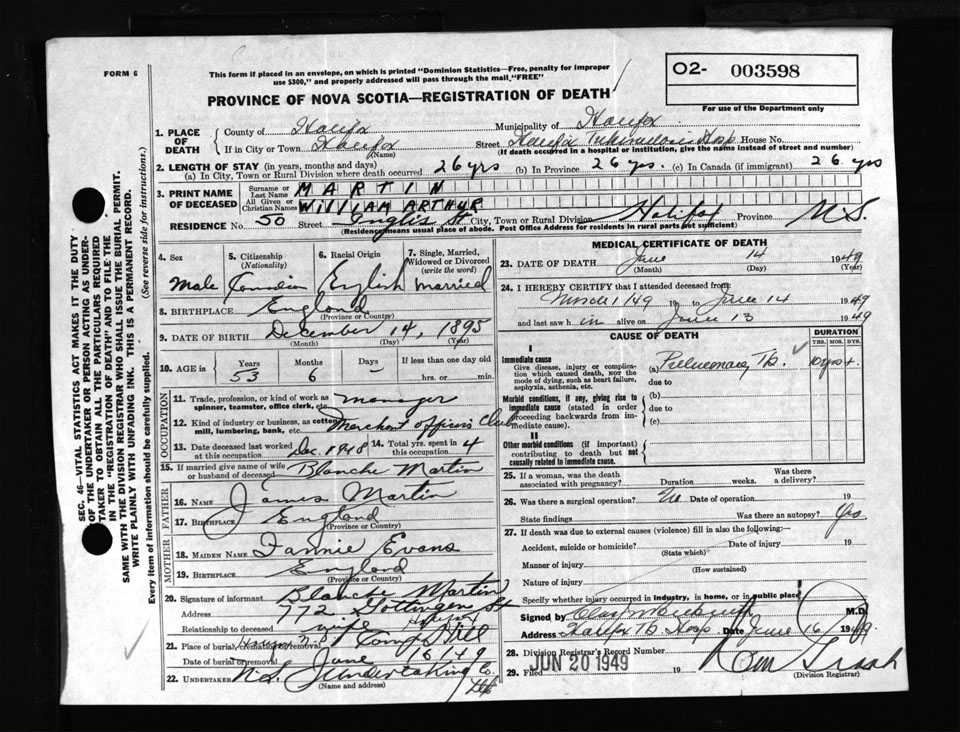 FORM 6
This form if placed in an envelope, on which is printed "Dominion Statistics—Free, penalty for improper
use $300," and properly addressed will pass through the mail "FREE"
PROVINCE OF NOVA SCOTIA—REGISTRATION OF DEATH
O2- 003598
For use of the Department only
1. PLACE OF DEATH
County of Halifax Municipality of Halifax
If in City or Town Halifax (Name) Street Halifax Tuberculosis Hosp House No.
(If death occurred in a hospital or institution, give the name instead of street and number)
2. LENGTH OF STAY (in years, months and days)
(a) In City, Town or Rural Division where death occurred 26 yrs (b) In Province 26 yrs. (c) In Canada (if immigrant) 26 yrs
3. PRINT NAME OF DECEASED
Surname or Last Name MARTIN
All Given or Christian Names WILLIAM ARTHUR
RESIDENCE No. 50 Street Inglis St City, Town or Rural Division Halifax Province N.S.
(Residence means usual place of abode. Post Office Address for residents in rural parts not sufficient)
4. Sex
Male
5. Citizenship (Nationality)
Canadian
6. Racial Origin
English
7. Single, Married, Widowed or Divorced (write the word)
Married
8. BIRTHPLACE England
(Province or Country)
9. DATE OF BIRTH December 14, 1895
(Month) (Day) (Year)
10. AGE in Years 53 Months 6 Days – If less than one day old
hrs. or min.
OCCUPATION
11. Trade, profession, or kind of work as spinner, teamster, office clerk, etc. manager
12. Kind of industry or business, as cotton mill, lumbering, bank, etc. Merchant officers Club
13. Date deceased last worked at this occupation Dec. 1948 14. Total yrs. spent in this occupation 4
15. If married give name of wife or husband of deceased Blanche Martin
FATHER
16. NAME James Martin
17. BIRTHPLACE England
(Province or Country)
MOTHER
18. MAIDEN NAME Fannie Evans
19. BIRTHPLACE England
(Province or Country)
20. Signature of informant Blanche Martin
Address 772 Gottingen St Halifax
Relationship to deceased wife
21. Place of burial, cremation or removal Camp Hill
Date of burial or removal June 16/49
22. UNDERTAKER N.S. Undertaking Co. Hfx
(Name and address)
MEDICAL CERTIFICATE OF DEATH
23. DATE OF DEATH June 14 1949
(Month) (Day) (Year)
24. I HEREBY CERTIFY that I attended deceased from:
March 1 49 19 to June 14 1949
and last saw him alive on June 13 1949
CAUSE OF DEATH
DURATION
YRS. MOS. DYS.
I
Immediate cause
Give disease, injury or complication which caused death, not the mode of dying, such as heart failure, asphyxia, asthenia, etc.
(a) Pulmonary Tb. 10 yrs +
due to
Morbid conditions, if any, giving rise to immediate cause (stated in order proceeding backwards from immediate cause).
(b)
due to
(c)
II
Other morbid conditions (if important) contributing to death but not causally related to immediate cause.
25. If a woman, was the death associated with pregnancy? Duration weeks Was there a delivery?
26. Was there a surgical operation? No Date of operation 19
State findings Was there an autopsy? Yes
27. If death was due to external causes (violence) fill in also the following:—
Accident, suicide or homicide? Date of injury 19
(State which)
Manner of injury
(How sustained)
Nature of injury
Specify whether injury occurred in industry, in home, or in public place
Signed by M.D.
Address Halifax Tb Hosp Date June 16 1949
28. Division Registrar's Record Number
29. Filed JUN 20 1949 19
(Division Registrar)
SEC. 46—VITAL STATISTICS ACT MAKES IT THE DUTY
OF THE UNDERTAKER OR PERSON ACTING AS UNDERTAKER
TO OBTAIN ALL THE PARTICULARS REQUIRED
IN THE "REGISTRATION OF DEATH" AND TO FILE THE
SAME WITH THE DIVISION REGISTRAR WHO SHALL ISSUE THE BURIAL PERMIT.
WRITE PLAINLY WITH UNFADING INK. THIS IS A PERMANENT RECORD.
Every item of information should be carefully supplied. (See reverse side for instructions.)